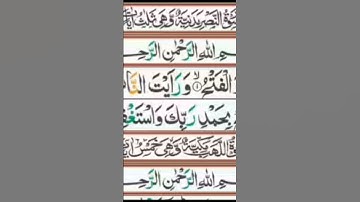 النَّصْرِ مَدَنِيَّةٌ وَّهِيَ ثَلٰثُ
مِ اللّٰهِ الرَّحْمٰنِ الرَّحِ
الْفَتْحُ ۙ وَرَاَيْتَ
بِحَمْدِ رَبِّكَ وَاسْتَغْفِ
اللَّهَبِ مَكِّيَّةٌ وَّهِيَ خَمْسُ
مِ اللّٰهِ الرَّحْمٰنِ الرَّحِ